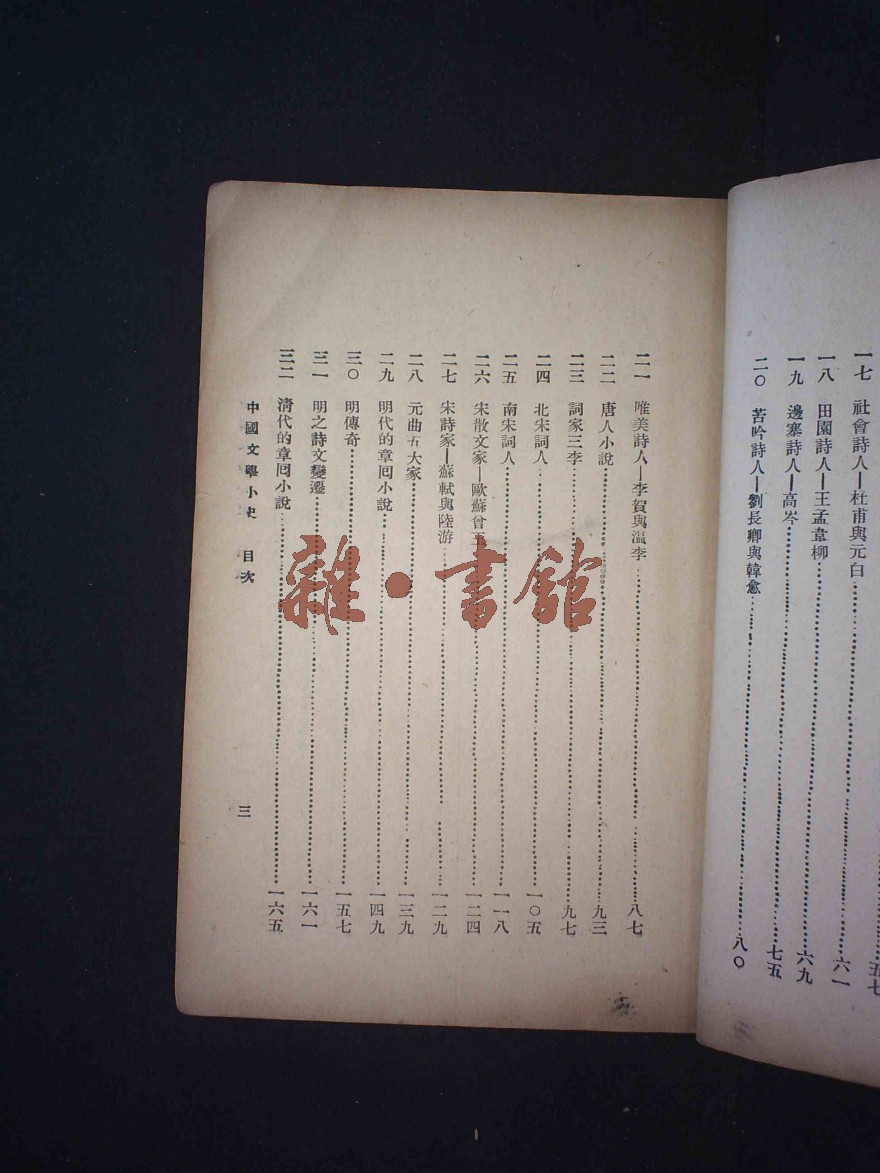 一七 社會詩人—杜甫與元白 五七
一八 田園詩人—王孟韋柳 六一
一九 邊塞詩人—高岑 六九
二〇 苦吟詩人—劉長卿與韓愈 八〇
二一 唯美詩人—李賀與溫李 八七
二二 唐人小說 九三
二三 詞家三李 九七
二四 北宋詞人 一〇五
二五 南宋詞人 一一八
二六 宋散文家—歐蘇曾王 一二四
二七 宋詩家—蘇軾與陸游 一二九
二八 元曲五大家 一三九
二九 明代的章囘小說 一四九
三〇 明傳奇 一五七
三一 明之詩文變遷 一六一
三二 淸代的章囘小說 一六五
中國文學小史 目次 三
雜·書館